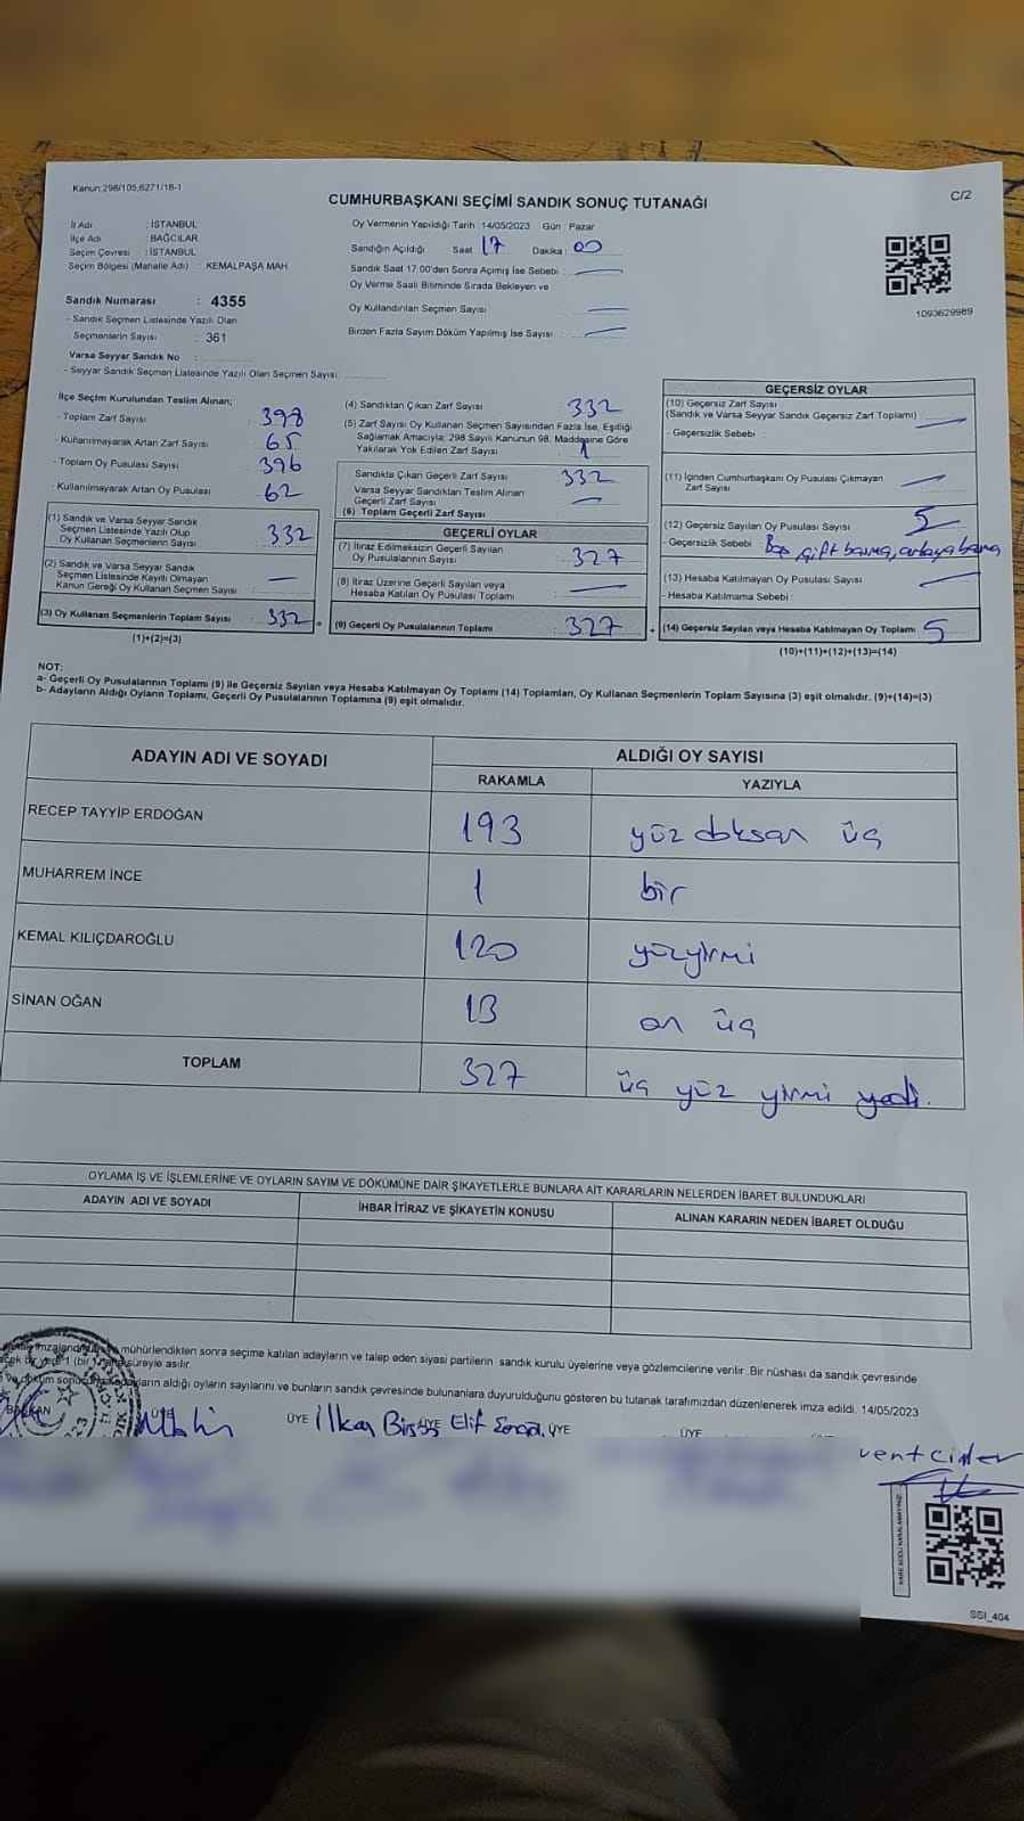 Kanun:298/105,6271/18-1
CUMHURBAŞKANI SEÇİMİ SANDIK SONUÇ TUTANAĞI
C/2
İl Adı : İSTANBUL
İlçe Adı : BAĞCILAR
Seçim Çevresi : İSTANBUL
Seçim Bölgesi (Mahalle Adı) : KEMALPAŞA MAH.
Sandık Numarası : 4355
- Sandık Seçmen Listesinde Yazılı Olan
Seçmenlerin Sayısı : 361
Varsa Seyyar Sandık No :
- Seyyar Sandık Seçmen Listesinde Yazılı Olan Seçmen Sayısı:
Oy Vermenin Yapıldığı Tarih 14/05/2023 Gün : Pazar
Sandığın Açıldığı Saat 17 Dakika : 00
Sandık Saat 17:00'den Sonra Açımış İse Sebebi :
Oy Verme Saati Bitiminde Sırada Bekleyen ve
Oy Kullandırılan Seçmen Sayısı :
Birden Fazla Sayım Döküm Yapılmış İse Sayısı :
1093629989
İlçe Seçim Kurulundan Teslim Alınan;
- Toplam Zarf Sayısı : 398
- Kullanılmayarak Artan Zarf Sayısı : 65
- Toplam Oy Pusulası Sayısı : 396
- Kullanılmayarak Artan Oy Pusulası : 62
(1) Sandık ve Varsa Seyyar Sandık
Seçmen Listesinde Yazılı Olup
Oy Kullanan Seçmenlerin Sayısı : 332
(2) Sandık ve Varsa Seyyar Sandık
Seçmen Listesinde Kayıtlı Olmayan
Kanun Gereği Oy Kullanan Seçmen Sayısı : —
(3) Oy Kullanan Seçmenlerin Toplam Sayısı : 332
(1)+(2)=(3)
(4) Sandıktan Çıkan Zarf Sayısı : 332
(5) Zarf Sayısı Oy Kullanan Seçmen Sayısından Fazla İse, Eşitliği
Sağlamak Amacıyla; 298 Sayılı Kanunun 98. Maddesine Göre
Yakılarak Yok Edilen Zarf Sayısı : 1
Sandıkta Çıkan Geçerli Zarf Sayısı : 332
Varsa Seyyar Sandıktan Teslim Alınan
Geçerli Zarf Sayısı : —
(6) Toplam Geçerli Zarf Sayısı
GEÇERLİ OYLAR
(7) İtiraz Edilmeksizin Geçerli Sayılan
Oy Pusulalarının Sayısı : 327
(8) İtiraz Üzerine Geçerli Sayılan veya
Hesaba Katılan Oy Pusulası Toplamı : —
(9) Geçerli Oy Pusulalarının Toplamı : 327
GEÇERSİZ OYLAR
(10) Geçersiz Zarf Sayısı
(Sandık ve Varsa Seyyar Sandık Geçersiz Zarf Toplamı) : —
- Geçersizlik Sebebi :
(11) İçinden Cumhurbaşkanı Oy Pusulası Çıkmayan
Zarf Sayısı : —
(12) Geçersiz Sayılan Oy Pusulası Sayısı : 5
- Geçersizlik Sebebi : Boş, çift basma, ortaya basma
(13) Hesaba Katılmayan Oy Pusulası Sayısı : —
- Hesaba Katılmama Sebebi :
(14) Geçersiz Sayılan veya Hesaba Katılmayan Oy Toplamı : 5
(10)+(11)+(12)+(13)=(14)
NOT:
a- Geçerli Oy Pusulalarının Toplamı (9) ile Geçersiz Sayılan veya Hesaba Katılmayan Oy Toplamı (14) Toplamları, Oy Kullanan Seçmenlerin Toplam Sayısına (3) eşit olmalıdır. (9)+(14)=(3)
b- Adayların Aldığı Oyların Toplamı, Geçerli Oy Pusulalarının Toplamına (9) eşit olmalıdır.
ADAYIN ADI VE SOYADI
ALDIĞI OY SAYISI
RAKAMLA YAZIYLA
RECEP TAYYİP ERDOĞAN 193 yüz doksan üç
MUHARREM İNCE 1 bir
KEMAL KILIÇDAROĞLU 120 yüzyirmi
SİNAN OĞAN 13 on üç
TOPLAM 327 üç yüz yirmi yedi.
OYLAMA İŞ VE İŞLEMLERİNE VE OYLARIN SAYIM VE DÖKÜMÜNE DAİR ŞİKAYETLERLE BUNLARA AİT KARARLARIN NELERDEN İBARET BULUNDUKLARI
ADAYIN ADI VE SOYADI
İHBAR İTİRAZ VE ŞİKAYETİN KONUSU
ALINAN KARARIN NEDEN İBARET OLDUĞU
mühürlendikten sonra seçime katılan adayların ve talep eden siyasi partilerin sandık kurulu üyelerine veya gözlemcilerine verilir. Bir nüshası da sandık çevresinde
süreyle asılır.
aldığı oyların sayılarını ve bunların sandık çevresinde bulunanlara duyurulduğunu gösteren bu tutanak tarafımızdan düzenlenerek imza edildi. 14/05/2023
BAŞKAN ÜYE ÜYE İlkay ÜYE Elif ÜYE ÜYE
SSI_404